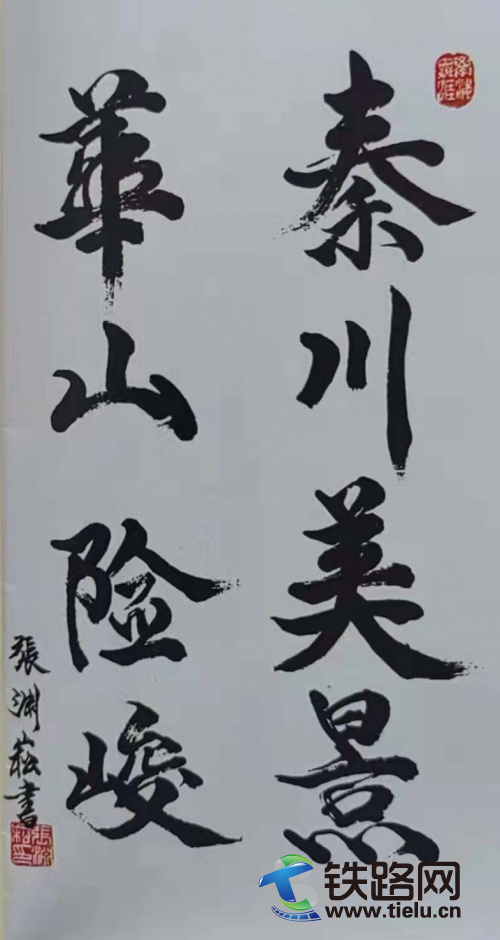 秦川美景
華山险峻
張渊崧書
铁路网
www.tielu.cn